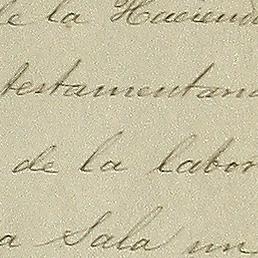 de la Hacienda
testamentari
de la labor
a Sala un